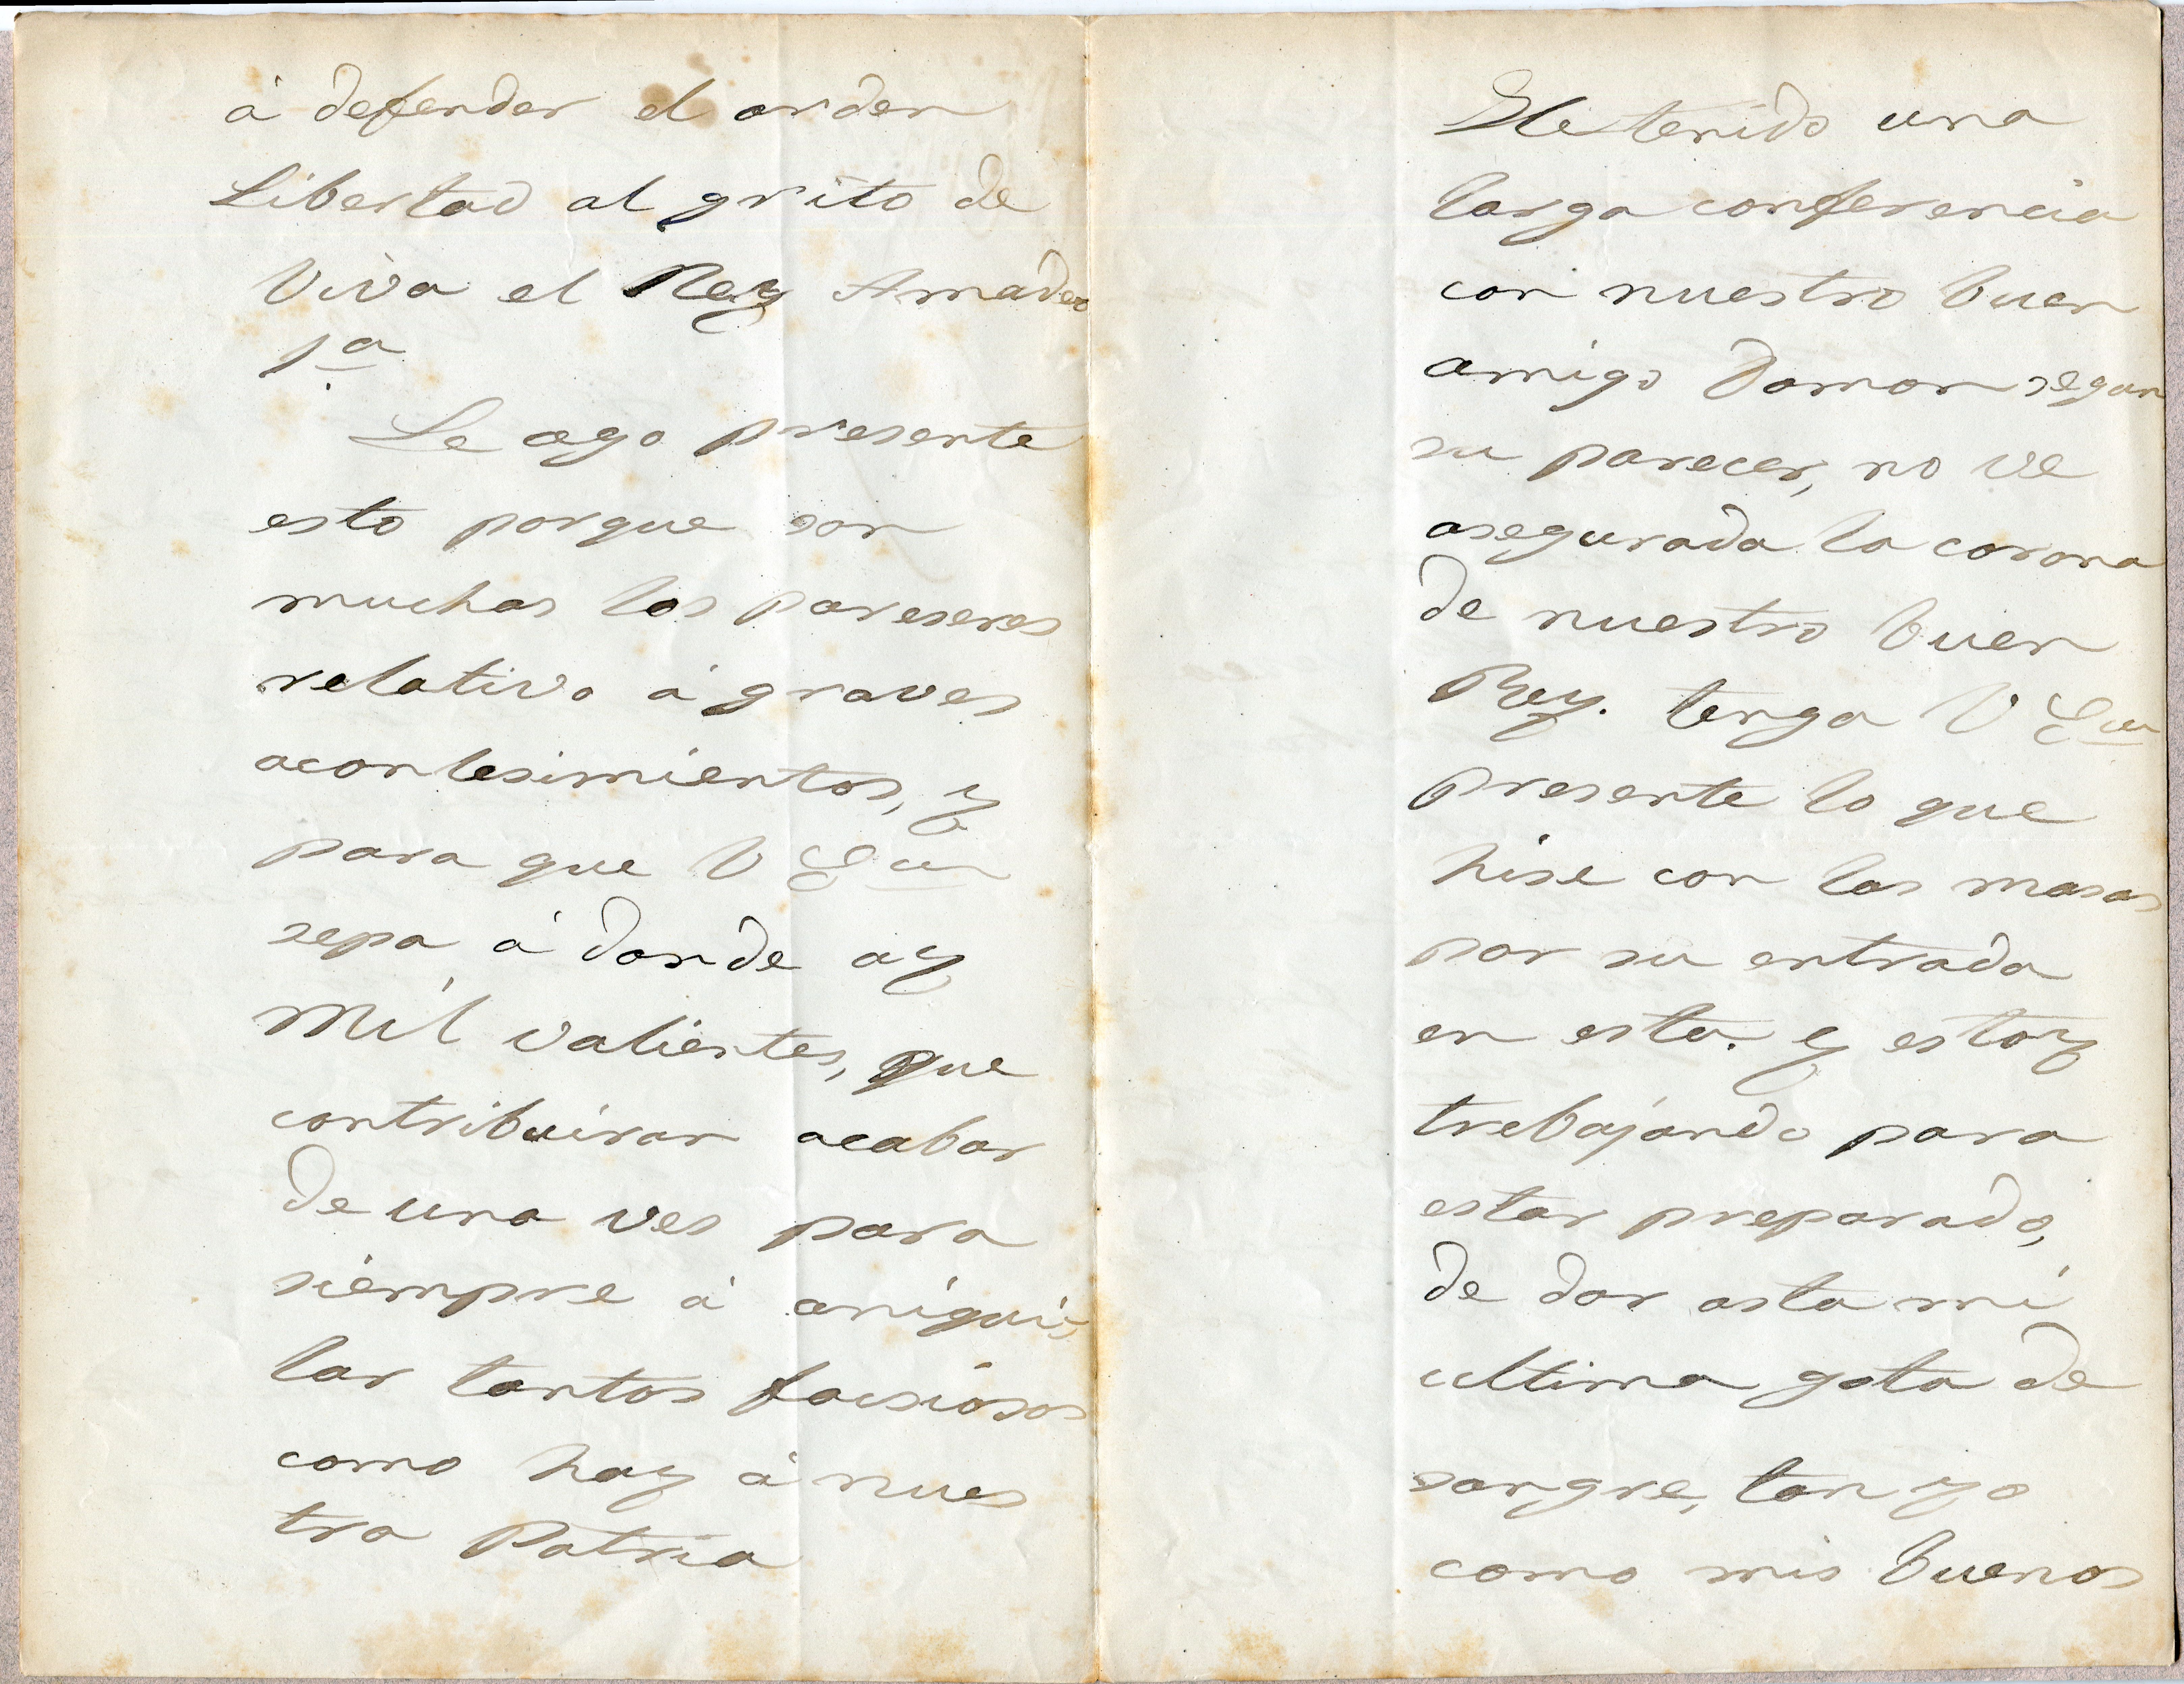 á defender el orden
Libertad al grito de
Viva el Rey Amadeo
1º
Le ago presente
esto porque son
muchos los pareseres
relativo á graves
acontesimientos, y
para que V Eª
sepa á donde ay
Mil valientes, que
contribuiran acabar
de una ves para
siempre á aniqui-
lar tantos facsiosos
como hay á nues
tra Patria
He tenido una
larga conferencia
con nuestro buen
amigo Damon segun
su parecer, no ve
asegurada la corona
de nuestro buen
Rey. tenga V Eª
presente lo que
hise con las masas
por su entrada
en esta. y estoy
trebajando para
estar preparado,
de dar asta mi
ultima gota de
sangre, tan yo
como mis buenos